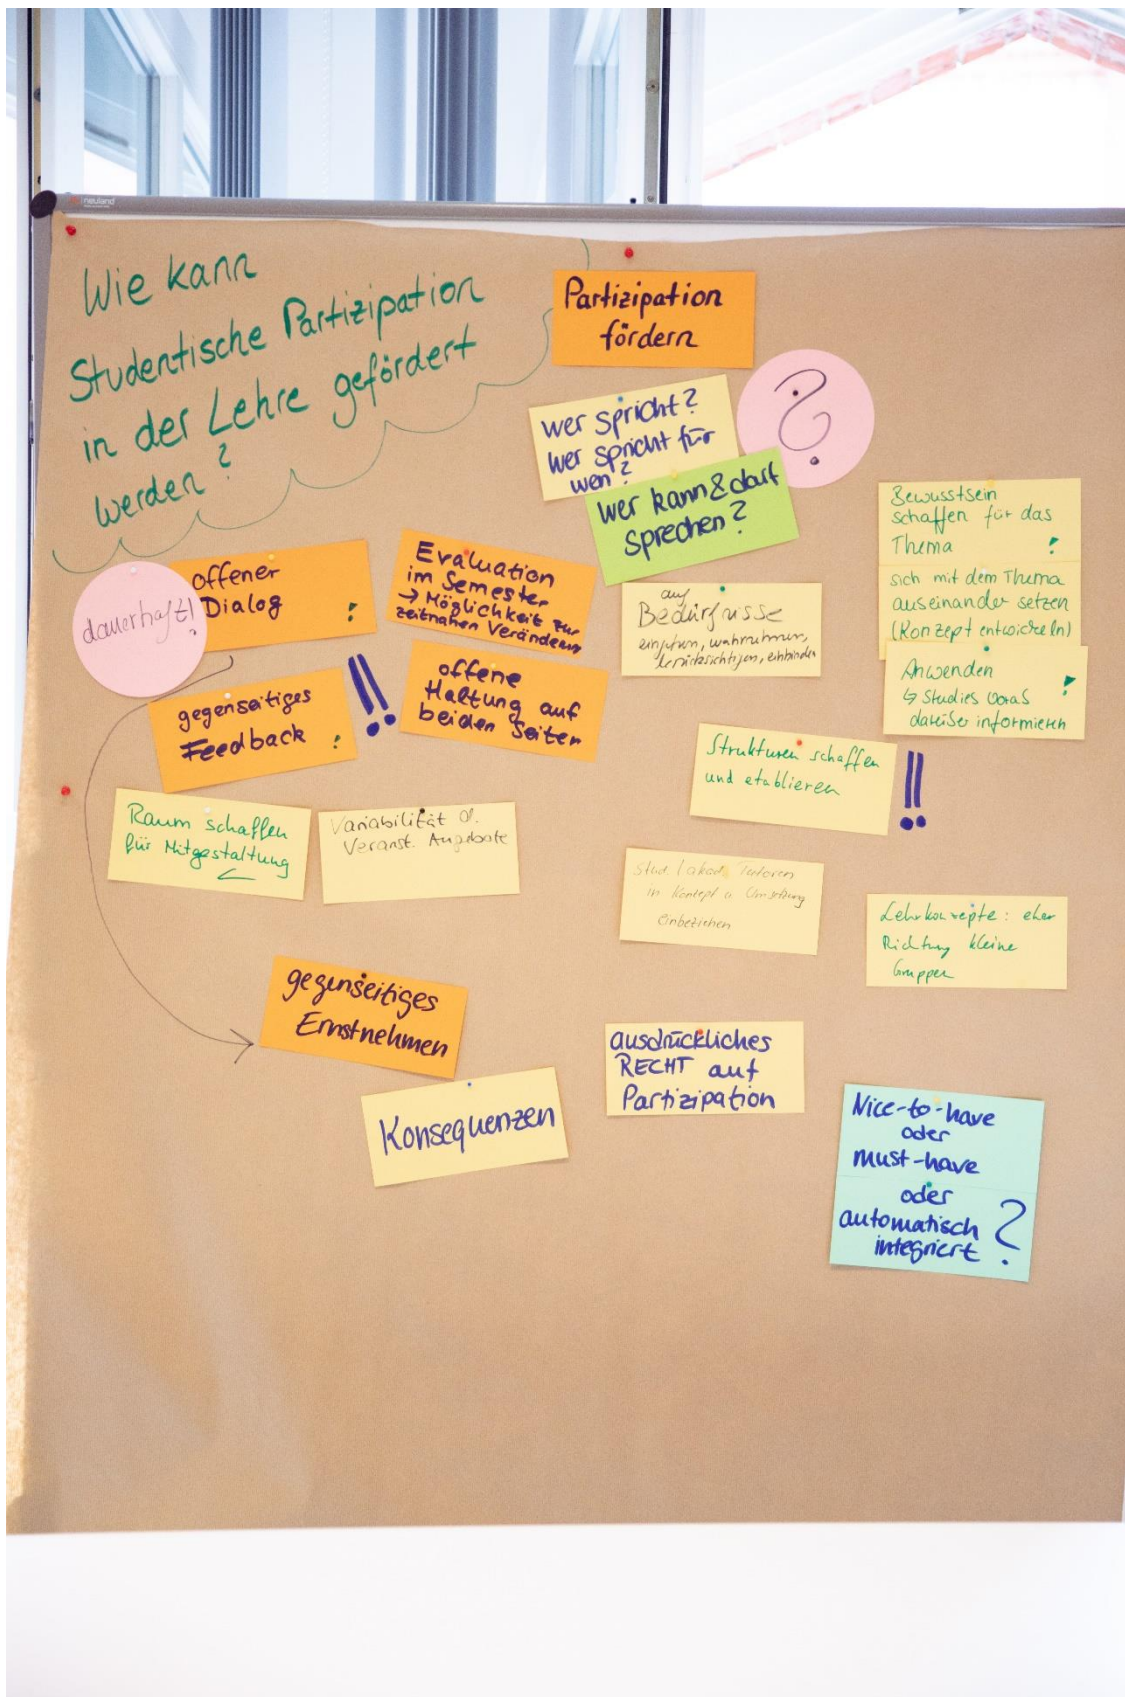 neuland
Wie kann
Studentische Partizipation
in der Lehre gefördert
werden?
Partizipation
fördern
wer spricht?
wer spricht für
wen?
?
wer kann & darf
sprechen?
Bewusstsein
schaffen für das
Thema !
sich mit dem Thema
auseinander setzen
(Konzept entwickeln)
Anwenden !
↳ Studies vorab
darüber informieren
dauerhaft!
offener
Dialog !
Evaluation
im Semester
→ Möglichkeit zur
zeitnahen Verändern
auf
Bedürfnisse
eingehen, wahrnehmen,
berücksichtigen, einbinden
gegenseitiges
Feedback !
!!
offene
Haltung auf
beiden Seiten
Strukturen schaffen
und etablieren
!!
Raum schaffen
für Mitgestaltung
Variabilität d.
Veranst. Angebote
Stud. / akad. Tutoren
in Konzept u. Umsetzung
einbeziehen
Lehrkonzepte: eher
Richtung kleine
Gruppen
gegenseitiges
Ernstnehmen
Konsequenzen
ausdrückliches
RECHT auf
Partizipation
Nice-to-have
oder
must-have
oder
automatisch
integriert ?